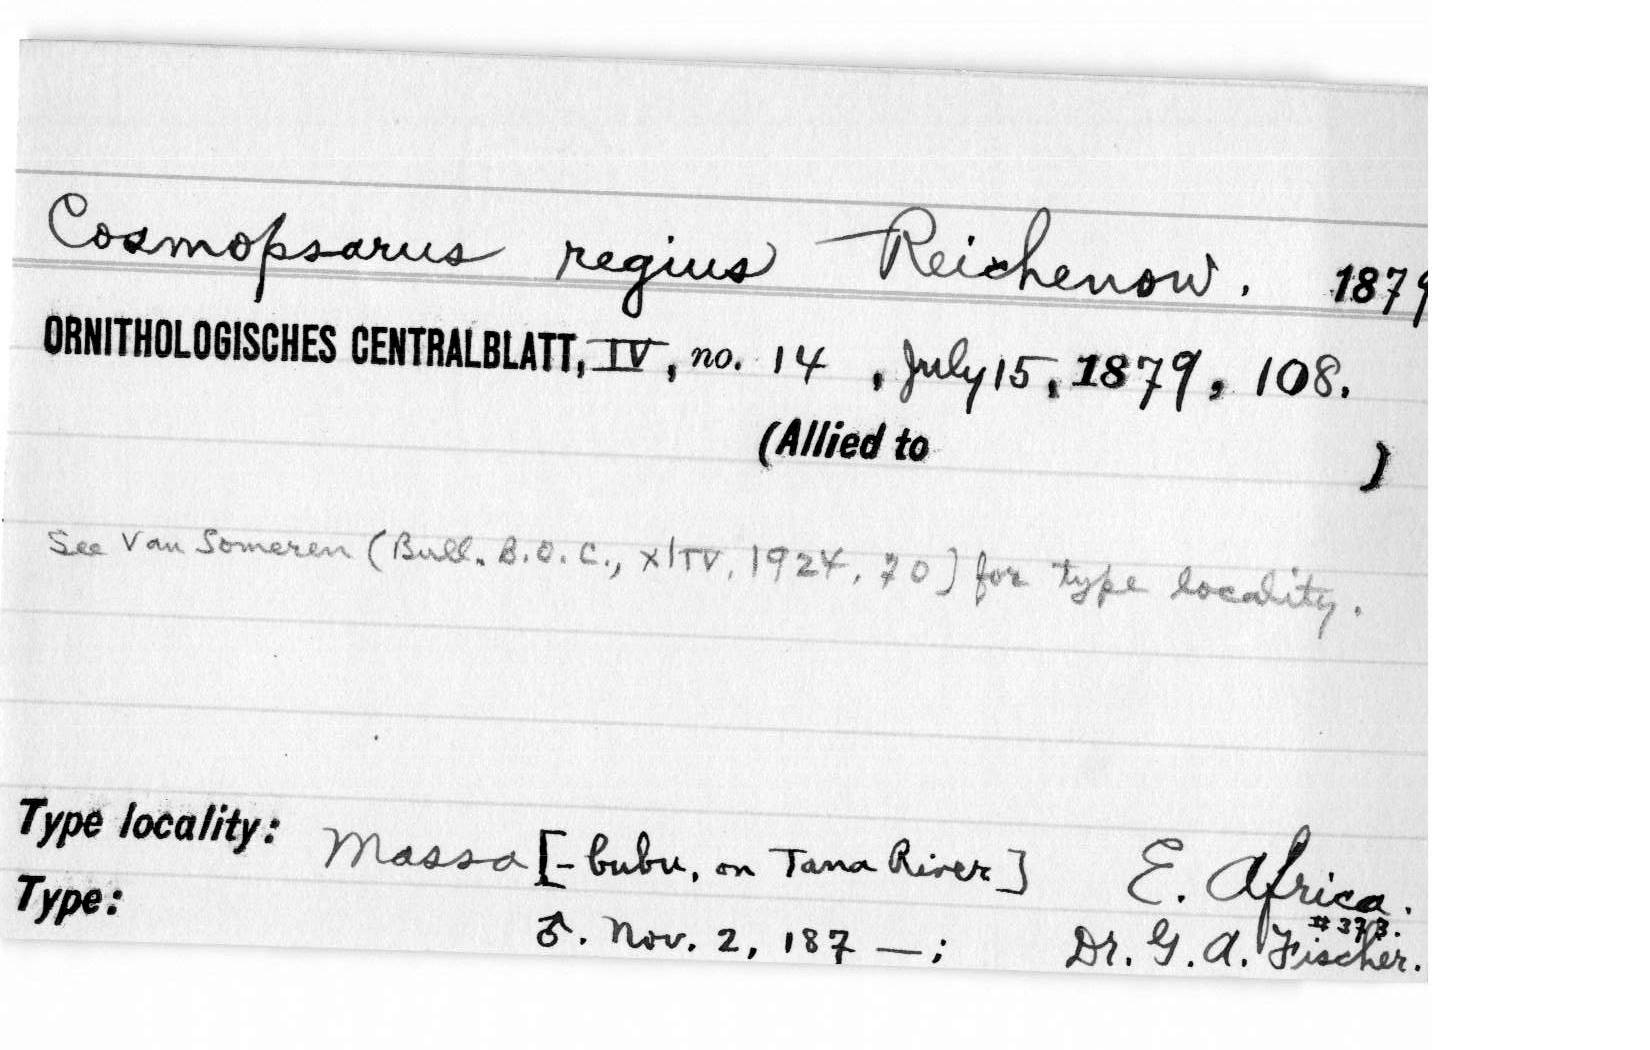 Cosmopsarus regius Reichenow. 1879
ORNITHOLOGISCHES CENTRALBLATT, IV, no. 14, July 15, 1879, 108.
(Allied to )
See Van Someren (Bull. B.O.C., xliv, 1924, 70) for type locality.
Type locality: Massa [-bubu, on Tana River] E. Africa.
#373.
Type: ♂. Nov. 2, 187 —; Dr. G. A. Fischer.